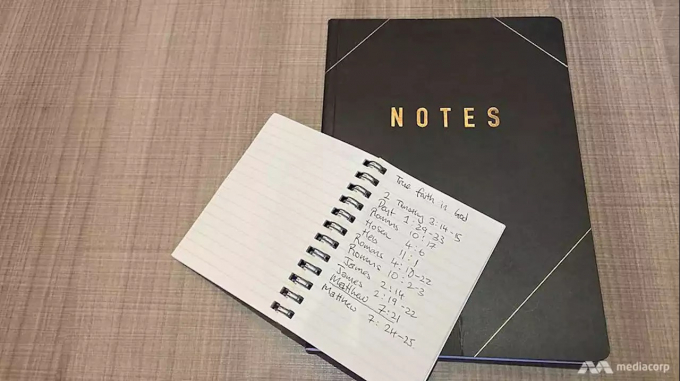 NOTES
True faith in God
2 Timothy 3:14-5
Dept 1:29-33
Romans 10:17
Hosea 4:6
Heb 11:1
Romans 4:18-22
Romans 10:2-3
James 2:14
James 2:19-22
Matthew 7:21
Matthew 7:24-25
mediacorp